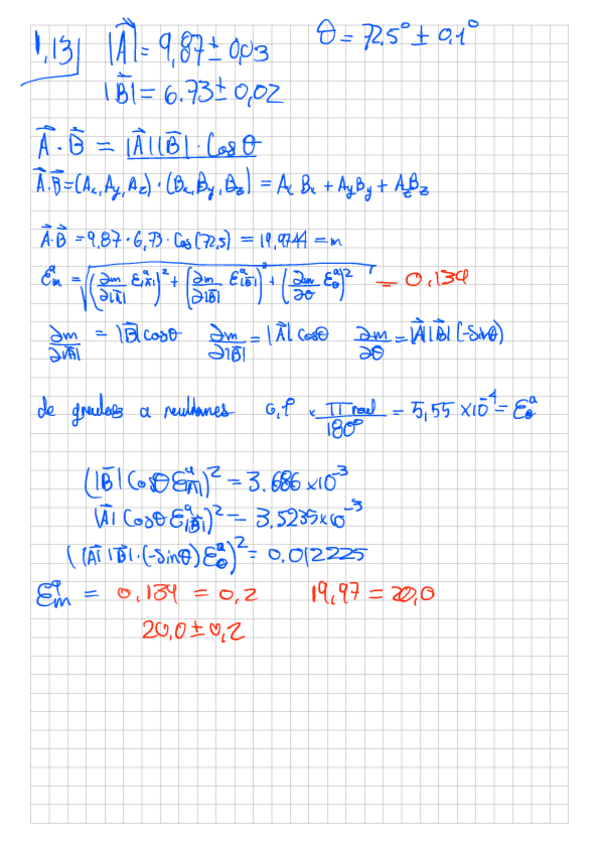 1,13 |A⃗| = 9,87 ± 0,03 θ = 72,5° ± 0,1°
|B⃗| = 6.73 ± 0,02
A⃗ · B⃗ = |A⃗||B⃗| · Cos θ
A⃗·B⃗ = (Ax, Ay, Az) · (Bx, By, Bz) = Ax Bx + AyBy + AzBz
A⃗·B⃗ = 9,87 · 6,73 · Cos(72,5) = 19,9744 = m
ε_m^a = √((∂m/∂|A⃗| ε_|A⃗|^a)² + (∂m/∂|B⃗| ε_|B⃗|^a)² + (∂m/∂θ ε_θ^a)²) = 0,134
∂m/∂|A⃗| = |B⃗| cosθ ∂m/∂|B⃗| = |A⃗| cosθ ∂m/∂θ = |A⃗||B⃗| (-sinθ)
de a 0,1° × π rad/180° = 5,55 × 10⁻⁴ = ε_θ^a
(|B⃗| Cosθ ε_|A⃗|^a)² = 3.686 × 10⁻³
|A⃗| Cosθ ε_|B⃗|^a)² = 3,5235 × 10⁻³
(|A⃗||B⃗| · (-sinθ) ε_θ^a)² = 0,012225
ε_m^a = 0,134 = 0,2 19,97 = 20,0
20,0 ± 0,2